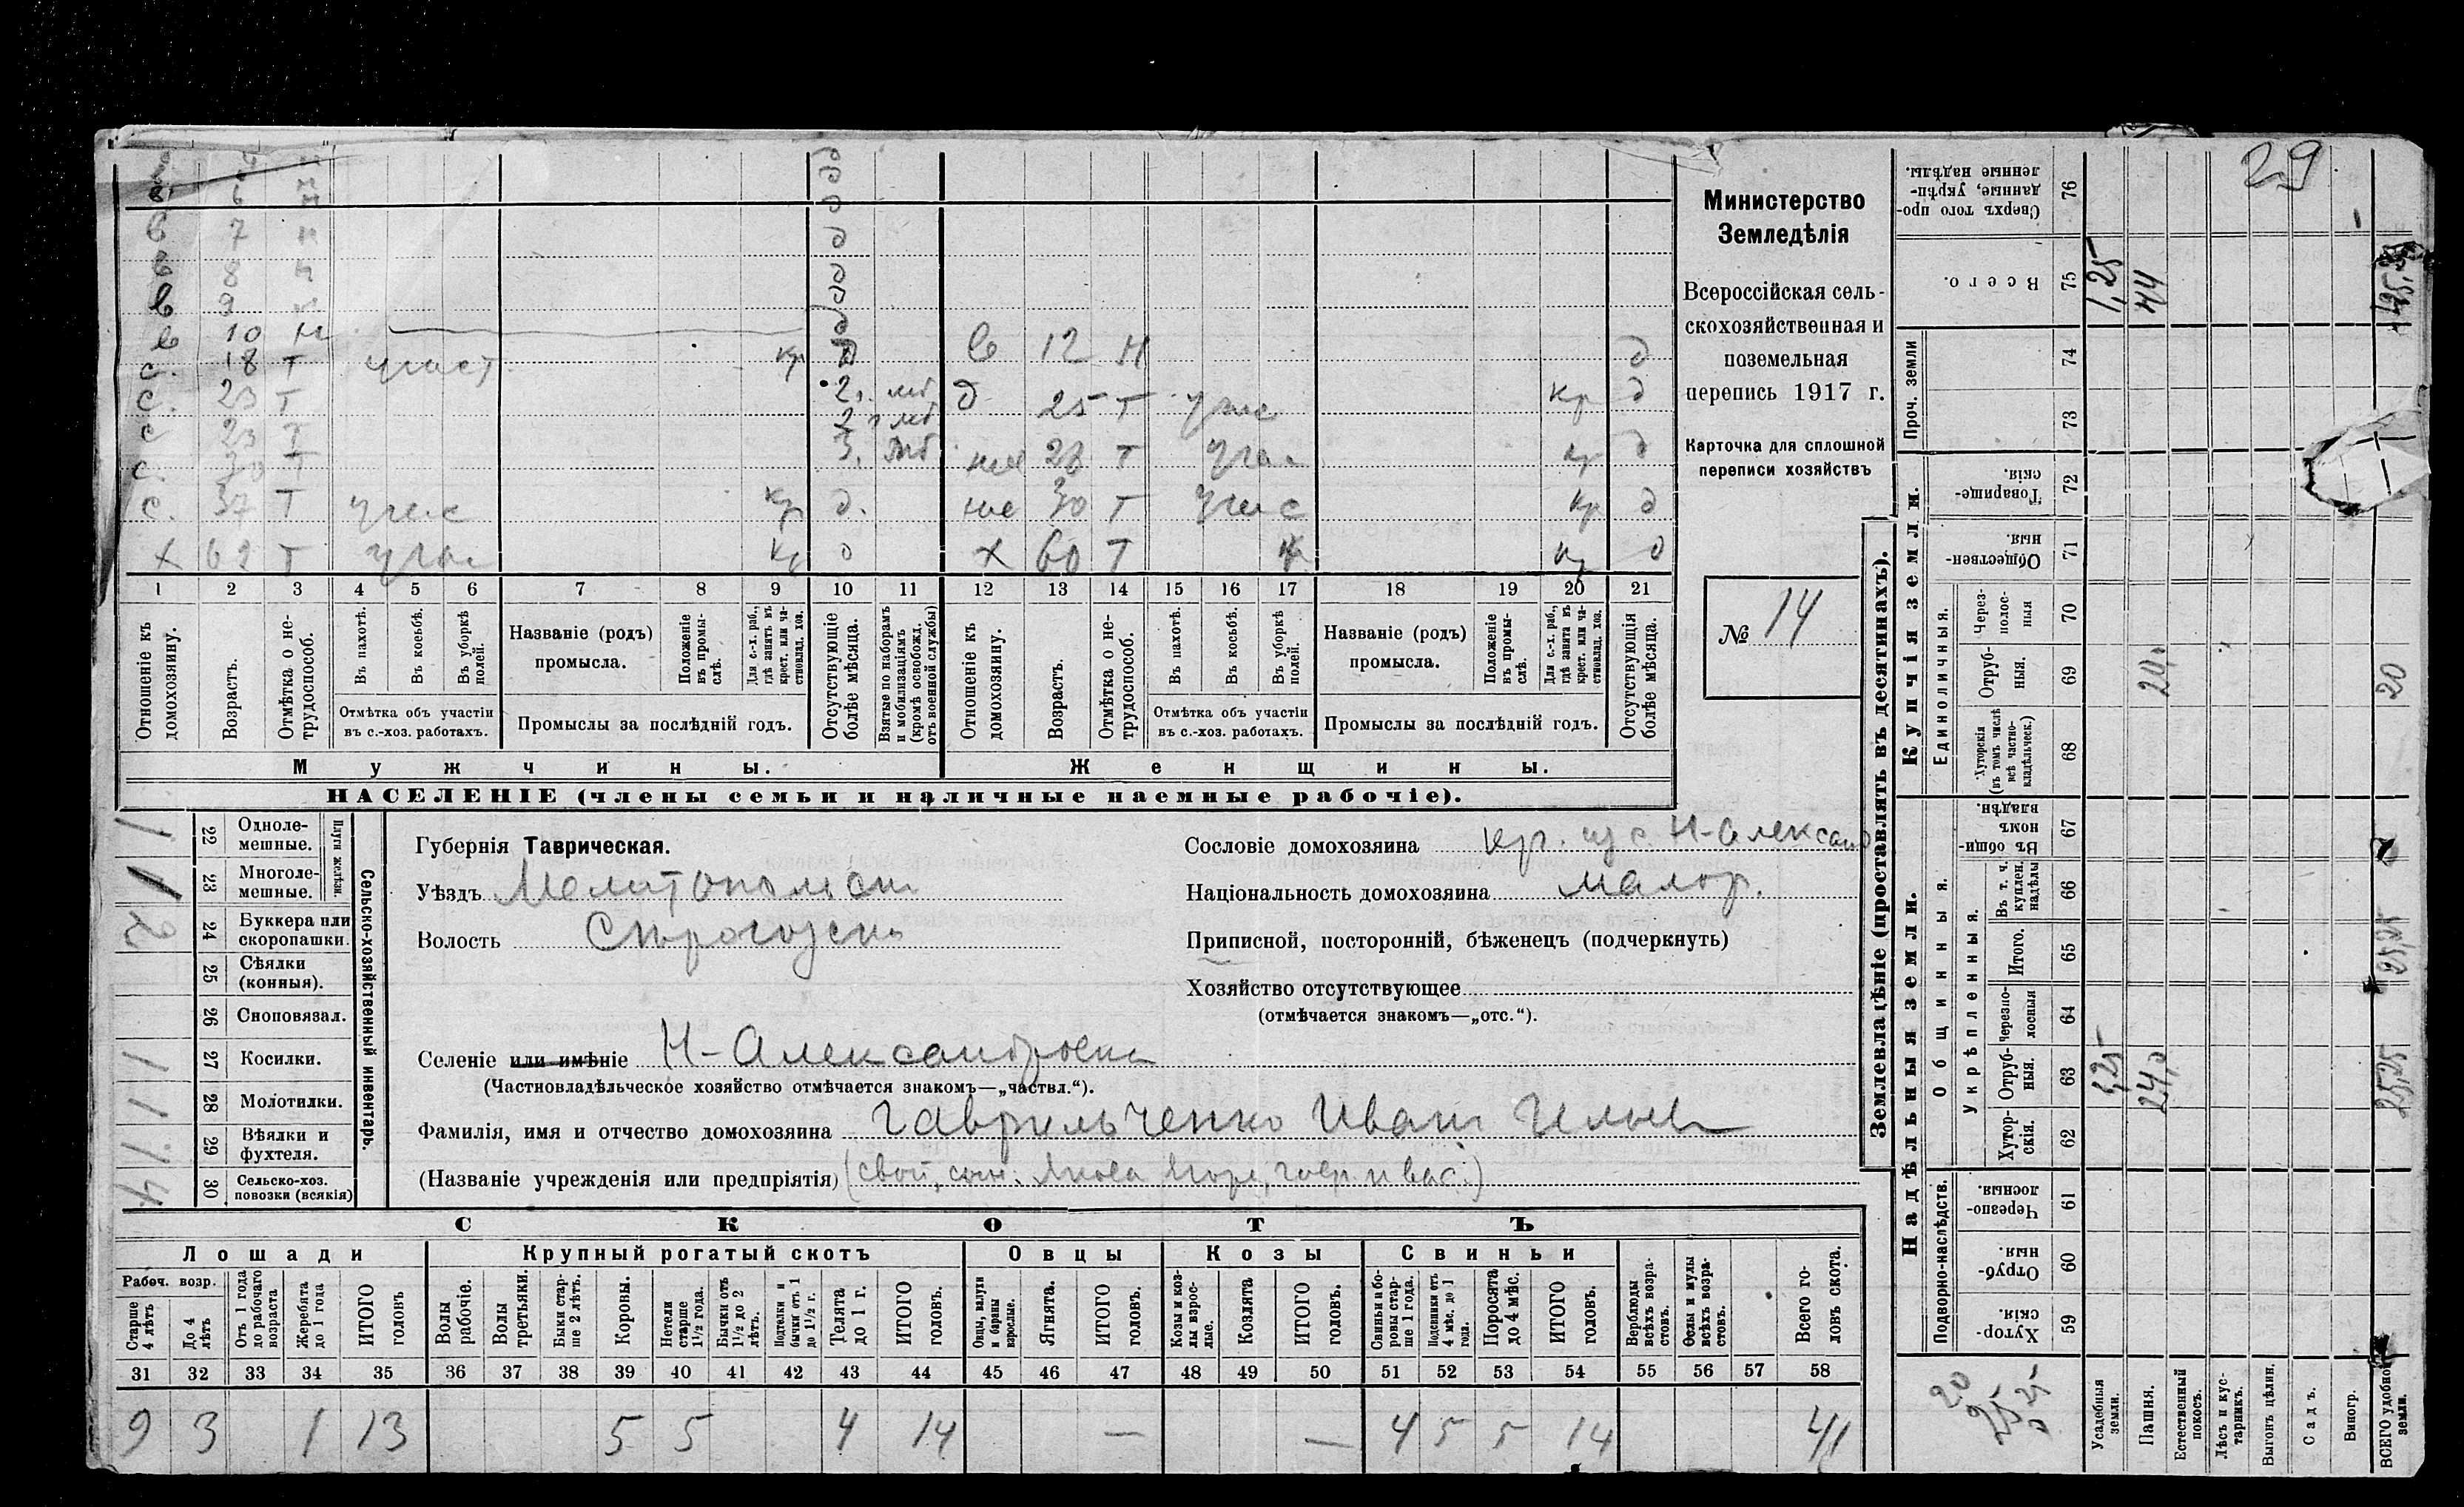 29
Министерство
Земледѣлія
Всероссійская сель-
скохозяйственная и
поземельная
перепись 1917 г.
Карточка для сплошной
переписи хозяйствъ
№ 14
в 7 н д
в 8 н д
в 9 н д
в 10 н в 12 н д
с. 18 Т участ кр д
с. 23 Т 2. мб. д 25 Т учас кр д
с 23 Т 2 мб. не 28 Т учас кр д
с. 30 Т 3. мб не 30 Т учас кр д
с. 37 Т учас кр д.
х 62 Т учас кр д х 60 Т кр д
1 2 3 4 5 6 7 8 9 10 11 12 13 14 15 16 17 18 19 20 21
Отношеніе къ домохозяину.
Возрастъ.
Отмѣтка о не-трудоспособ.
Въ пахотѣ.
Въ косьбѣ.
Въ уборкѣ полей.
Отмѣтка объ участіи въ с.-хоз. работахъ.
Названіе (родъ) промысла.
Положеніе въ промы-слѣ.
Для с.-х. раб., гдѣ занятъ въ крест. или ча-стновлад. хоз.
Промыслы за послѣдній годъ.
Отсутствующіе болѣе мѣсяца.
Взятые по наборамъ и мобилизаціямъ (кромѣ освобожд. отъ военной службы)
Отношеніе къ домохозяину.
Возрастъ.
Отмѣтка о не-трудоспособ.
Въ пахотѣ.
Въ косьбѣ.
Въ уборкѣ полей.
Отмѣтка объ участіи въ с.-хоз. работахъ.
Названіе (родъ) промысла.
Положеніе въ промы-слѣ.
Для с.-х. раб., гдѣ занята въ крест. или ча-стновлад. хоз.
Промыслы за послѣдній годъ.
Отсутствующія болѣе мѣсяца.
Мужчины. Женщины.
НАСЕЛЕНІЕ (члены семьи и наличные наемные рабочіе).
Сельско-хозяйственный инвентарь.
Плуги желѣзн.
1 22 Одноле-мешные.
1 23 Многоле-мешные.
2 24 Буккера или скоропашки.
25 Сѣялки (конныя).
26 Сноповязал.
1 27 Косилки.
1 28 Молотилки.
1 29 Вѣялки и фухтеля.
4 30 Сельско-хоз. повозки (всякія)
Губернія Таврическая.
Уѣздъ Мелитопольск
Волость Сѣрогозск
Сословіе домохозяина кр. из с. Н-Александ
Національность домохозяина малор.
Приписной, посторонній, бѣженецъ (подчеркнуть)
Хозяйство отсутствующее
(отмѣчается знакомъ—„отс.“).
Селеніе или имѣніе Н-Александровка
(Частновладѣльческое хозяйство отмѣчается знакомъ—„частвл.“).
Фамилія, имя и отчество домохозяина Гаврильченко Иван Ильич
(Названіе учрежденія или предпріятія)
СКОТЪ
Лошади Крупный рогатый скотъ Овцы Козы Свиньи
Рабоч. возр.
Старше 4 лѣтъ
До 4 лѣтъ
Отъ 1 года до рабочаго возраста
Жеребята до 1 года
ИТОГО головъ
Волы рабочіе.
Волы третьяки.
Быки стар-ше 2 лѣтъ.
Коровы.
Нетели старше 1½ года.
Бычки отъ 1½ до 2 лѣтъ.
Подтелки и бычки отъ 1 до 1½ г.
Телята до 1 г.
ИТОГО головъ.
Овцы, валухи и бараны взрослые.
Ягнята.
ИТОГО головъ.
Козы и коз-лы взрос-лые.
Козлята
ИТОГО головъ.
Свиньи и бо-ровы стар-ше 1 года.
Подсвинки отъ 4 мѣс. до 1 года.
Поросята до 4 мѣс.
ИТОГО головъ.
Верблюды всѣхъ возра-стовъ.
Ослы и мулы всѣхъ возра-стовъ.
Всего го-ловъ скота.
31 32 33 34 35 36 37 38 39 40 41 42 43 44 45 46 47 48 49 50 51 52 53 54 55 56 57 58
9 3 1 13 5 5 4 14 — — 4 5 5 14 41
Землевладѣніе (проставлять въ десятинахъ).
Надѣльныя земли.
Купчія земли.
Проч. земли
Подворно-наслѣдств.
Общинныя.
Укрѣпленныя.
Единоличныя.
Сверхъ того про-данные, укрѣп-ленные надѣлы. 76
Всего. 75 1,25 44 45,25
74
73
Товарище-скія. 72
Обществен-ныя. 71
Через-полос-ныя 70
Отруб-ныя. 69 20, 20
Хуторскія (въ томъ числѣ всѣ частно-владѣльческ.) 68
Въ общин-номъ владѣн. 67
Въ т. ч. куплен. надѣлы 66
Итого. 65 25,25
Черезпо-лосныя 64
Отруб-ныя. 63 1,25 24,0 25,25
Хутор-скія. 62
Черезпо-лосныя. 61
Отруб-ныя. 60
Хутор-скія. 59
Усадебныя земли.
Пашня.
Естественный покосъ.
Лѣсъ и кус-тарникъ.
Выгонъ цѣлин.
Садъ.
Виногр.
ВСЕГО удобной земли.